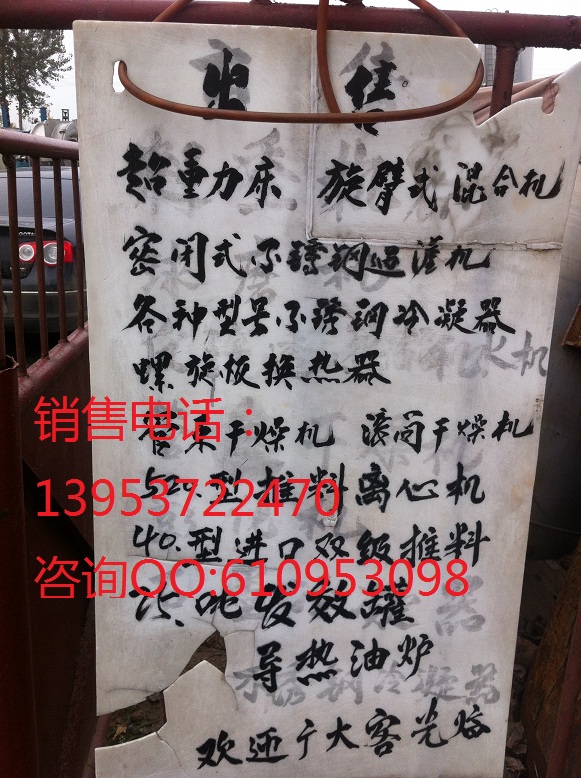 出售
超重力床 旋臂式混合机
密闭式不锈钢过滤机
各种型号不锈钢冷凝器
螺旋板换热器
销售电话：
管束干燥机 滚筒干燥机
520.型推料离心机
13953722470
40.型进口双级推料
咨询QQ:610953098
吨发效罐
导热油炉
欢迎广大客光临